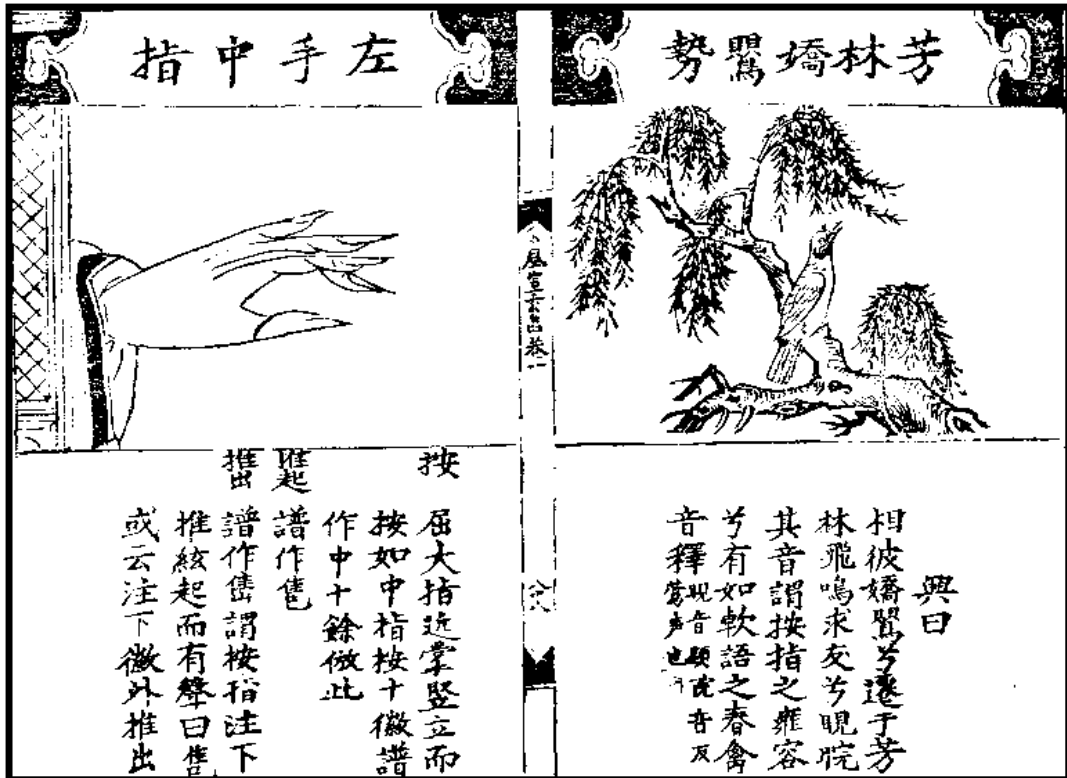 芳林嬌鸎勢
興曰
相彼嬌鸎兮遷于芳
林飛鳴求友兮睍睆
其音謂按指之雍容
兮有如軟語之春禽
音釋 睍音顯睆音反
鶯声也
風宣玄品卷一
左手中指
按 屈大指近掌竪立而
按如中指按十徽譜
作中十餘倣此
推起 譜作
推出 譜作雋謂按指注下
推絃起而有聲曰
或云注下徽外推出